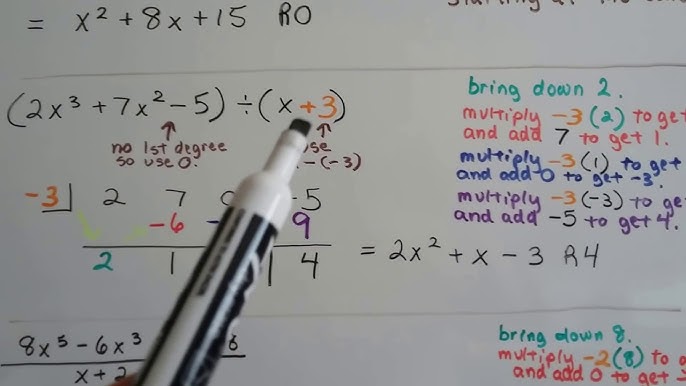 = x² + 8x + 15 R0
(2x³ + 7x² - 5) ÷ (x + 3)
no 1st degree
so use 0.
-(-3)
-3 2 7 -5
-6 9
2 1 4
= 2x² + x - 3 R4
bring down 2.
multiply -3(2) to get
and add 7 to get 1.
multiply -3(1) to get
and add 0 to get -3.
multiply -3(-3) to get
and add -5 to get 4.
8x⁵ - 6x³
x + 2
bring down 8.
multiply -2(8) to
and add 0 to get